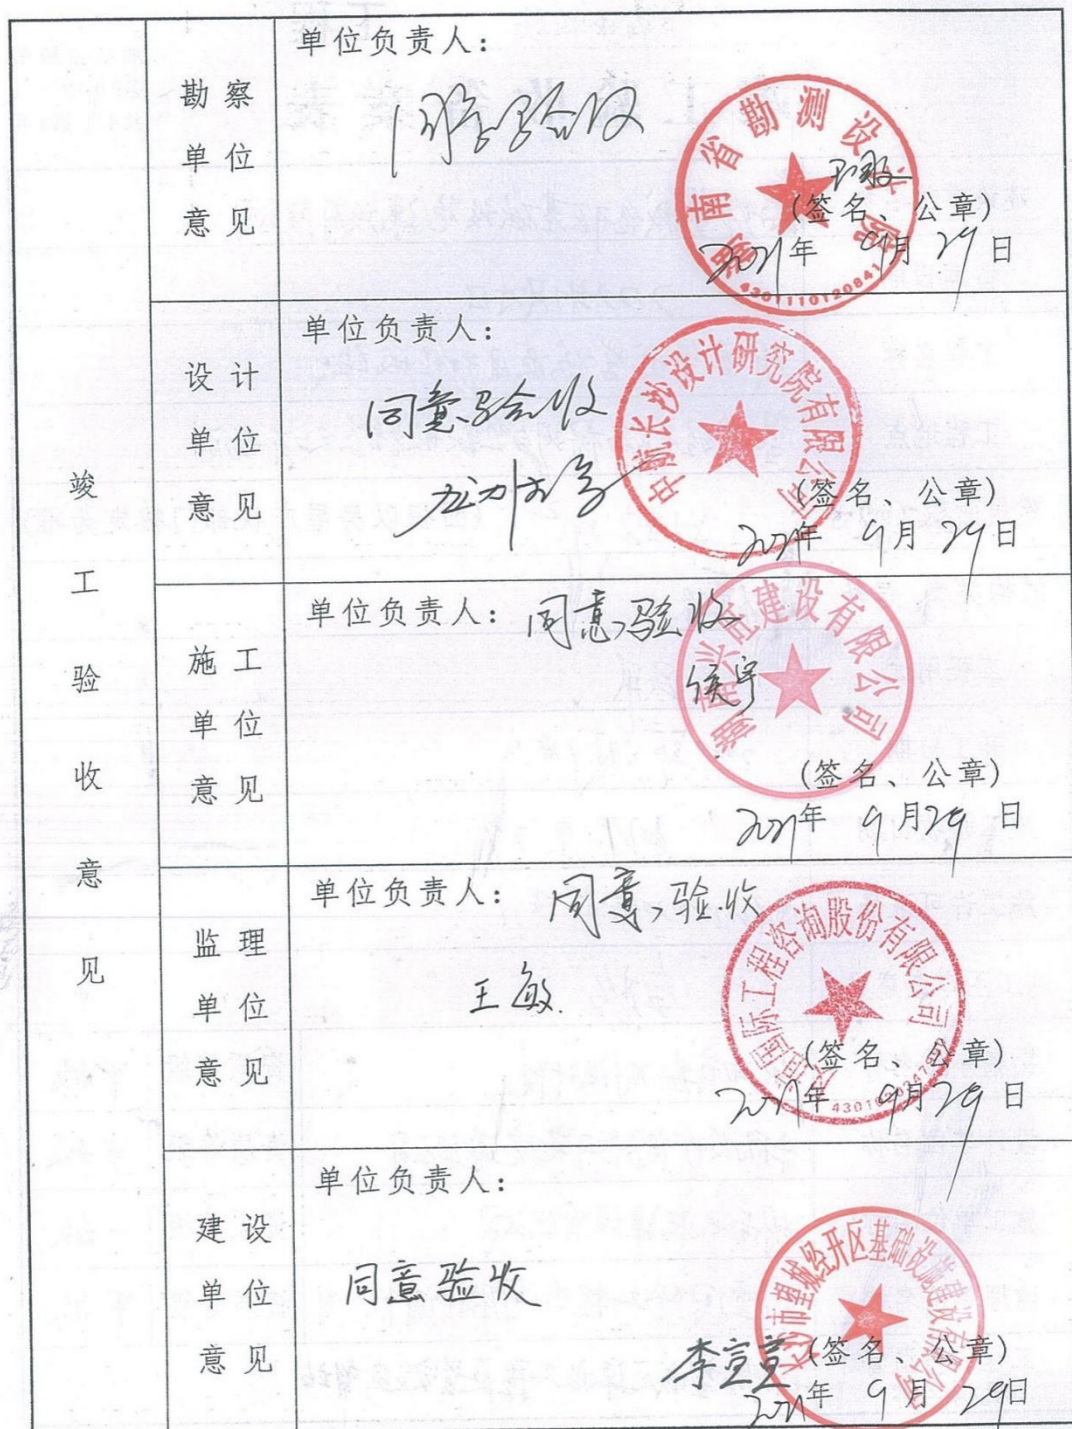 竣工验收意见
勘察单位意见
单位负责人：
同意验收
湖南省勘测设计院
4301110120841
(签名、公章)
2021年 9月 29日
设计单位意见
单位负责人：
同意验收
中航长沙设计研究院有限公司
(签名、公章)
2021年 9月 29日
施工单位意见
单位负责人：同意验收
侯宇
湖南兴旺建设有限公司
(签名、公章)
2021年 9月29日
监理单位意见
单位负责人：同意验收
王敏
国际工程咨询股份有限公司
(签名、公章)
2021年 9月29日
建设单位意见
单位负责人：
同意验收
长沙市望城经开区基础设施建设有限公司
李宣萱 (签名、公章)
2021年 9月 29日